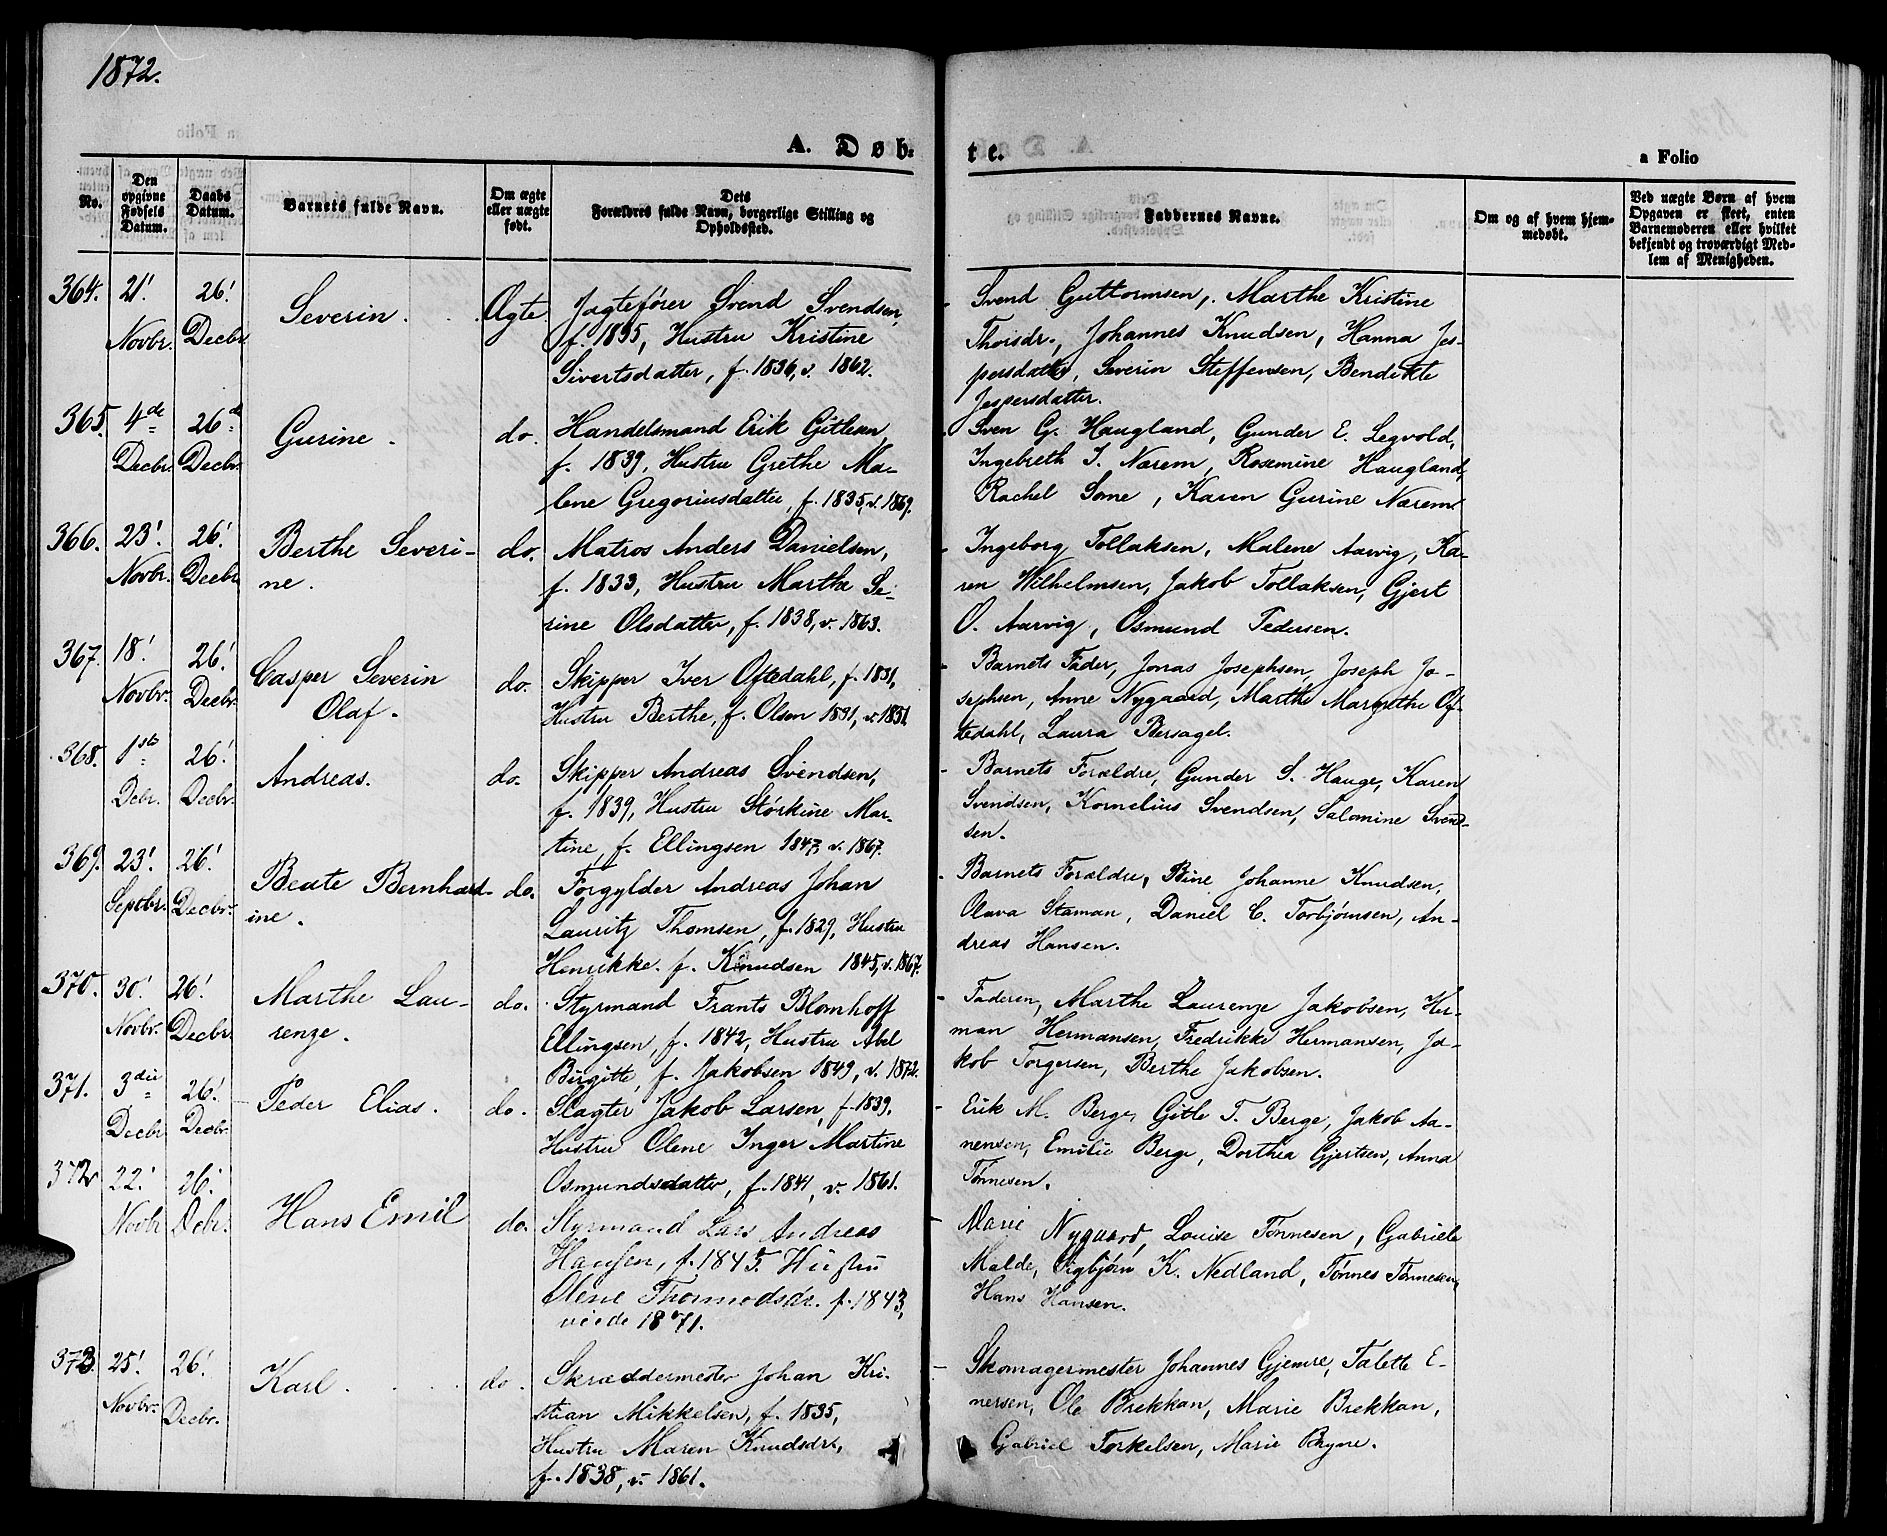 1872.
A. Døb-
te.
a Folio
No.
Den opgivne Fødsels Datum.
Daabs Datum.
Barnets fulde Navn.
Om ægte eller uægte født.
Dets Forældres fulde Navn, borgerlige Stilling og Opholdssted.
Faddernes Navne.
Om og af hvem hjem-
medøbt.
Ved uægte Børn af hvem
Opgaven er skeet, enten
Barnemoderen eller hvilket
bekjendt og troværdigt Med-
lem af Menigheden.
364. 21! Novbr. 26! Decbr. Severin. Ægte.
Jagtefører Svend Svendsen,
f. 1835, Hustru Kristine
Sivertsdatter, f. 1836, v. 1862.
- Svend Guttormsen, Marthe Kristine
Thoisdr., Johannes Knudsen, Hanna Jes-
persdatter, Severin Steffensen, Bendikte
Jespersdatter.
365. 4de Decbr. 26de Decbr. Gurine. do.
Handelsmand Erik Gitlesen,
f. 1839, Hustru Grethe Ma-
lene Gregoriusdatter, f. 1835, v. 1869.
- Sven G. Haugland, Gunder E. Legvold,
Ingebreth I. Nærem, Rosemine Haugland,
Rachel Some, Karen Gurine Nærem.
366. 23! Novbr. 26! Decbr. Berthe Severi-
ne. do.
Matros Anders Danielsen,
f. 1833, Hustru Marthe Se-
rine Olsdatter, f. 1838, v. 1863.
- Ingeborg Tollaksen, Malene Aarvig, Ka-
ren Wilhelmsen, Jakob Tollaksen, Gjert
O. Aarvig, Osmund Pedersen.
367. 18! Novbr. 26! Decbr. Casper Severin
Olaf. do.
Skipper Iver Oftedahl, f. 1831,
Hustru Berthe, f. Olsen 1831, v. 1851.
- Barnets Fader, Jonas Josephsen, Joseph Jo-
sephsen, Anne Nygaard, Marthe Margrethe Of-
tedahl, Laura Bersagel.
368. 1ste Debr. 26! Decbr. Andreas. do.
Skipper Andreas Svendsen,
f. 1839, Hustru Størkine Mar-
tine, f. Ellingsen 1847, v. 1867.
- Barnets Forældre, Gunder S. Hauge, Karen
Svendsen, Kornelius Svendsen, Salomine Svend-
sen.
369. 23! Septbr. 26! Decbr. Beate Bernhard-
ine. do.
Forgylder Andreas Johan
Lauritz Thomsen, f. 1829, Hustru
Henrikke. f. Knudsen 1845, v. 1867.
- Barnets Forældre, Bine Johanne Knudsen,
Olava Staman, Daniel C. Torbjørnsen, An-
dreas Hansen.
370. 30! Novbr. 26! Decbr. Marthe Lau-
renze. do.
Styrmand Frants Blomhoff
Ellingsen, f. 1842, Hustru Abel
Birgitte, f. Jakobsen 1849, v. 1872.
- Faderen, Marthe Laurenze Jakobsen, Her-
man Hermansen, Fredrikke Hermansen, Ja-
kob Torgersen, Berthe Jakobsen.
371. 3die Decbr. 26! Decbr. Peder Elias. do.
Slagter Jakob Larsen, f. 1839.
Hustru Olene Inger Martine
Osmundsdatter, f. 1841, v. 1861.
- Erik M. Berge, Gitle T. Berge, Jakob Aa-
nensen, Emilie Berge, Dorthea Gjertsen, Anna
Tønnesen.
372 22! Novbr 26! Dcbr. Hans Emil do.
Styrmand Lars Andreas
Hansen, f. 1845. Hustru
Olene Thormodsdr. f. 1843,
viede 1871.
- Marie Nygaard, Louise Tønnesen, Gabriele
Malde, Sigbjørn K. Nedland, Tønnes Tønnesen,
Hans Hansen.
373. 25! Novbr. 26! Decbr. Karl. do.
Skræddermester Johan Kri-
stian Mikkelsen, f. 1835,
Hustru Maren Knudsdr.,
f. 1838, v. 1861.
- Skomagermester Johannes Gjemre, Talette E-
nersen, Ole Brekkan, Marie Brekkan,
Gabriel Torkelsen, Marie Bryne.